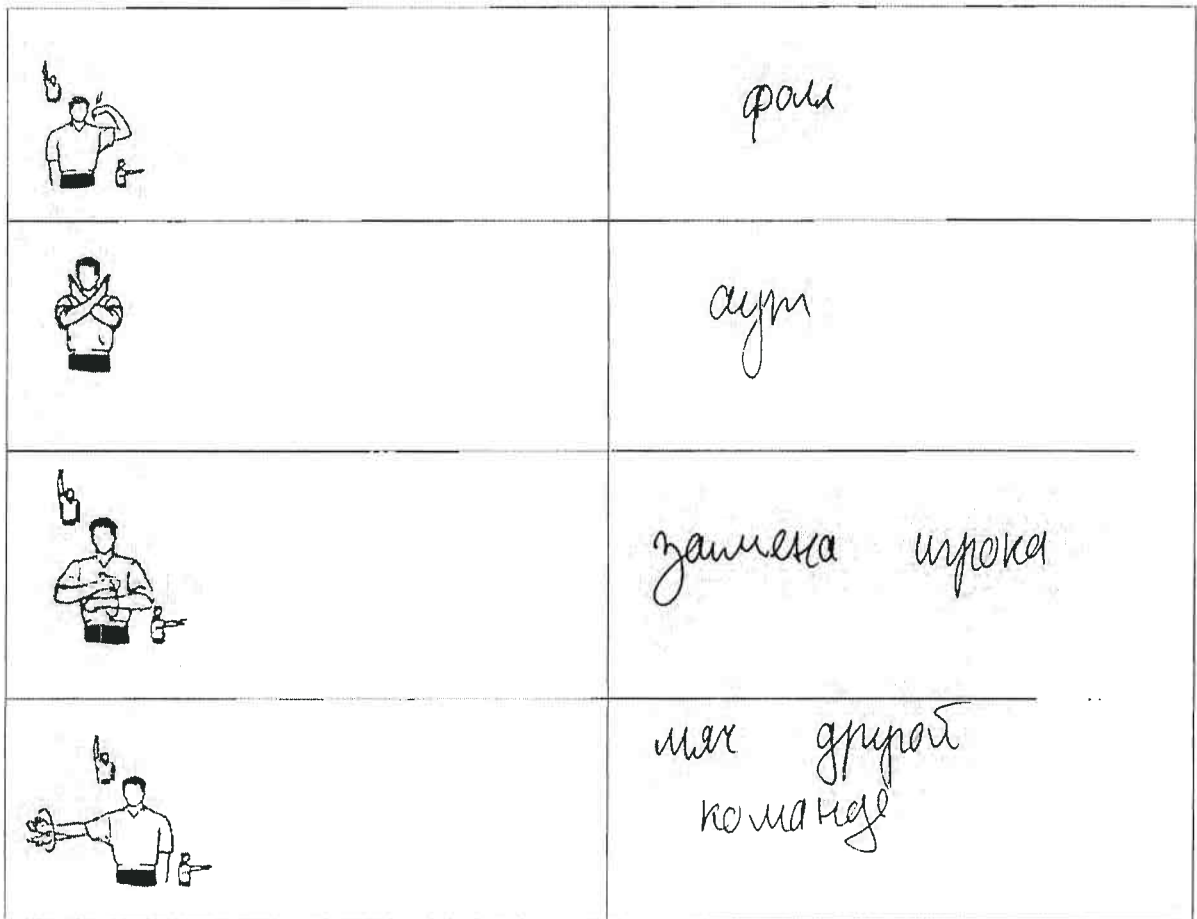 фолл
аут
замена игрока
мяч другой
команде